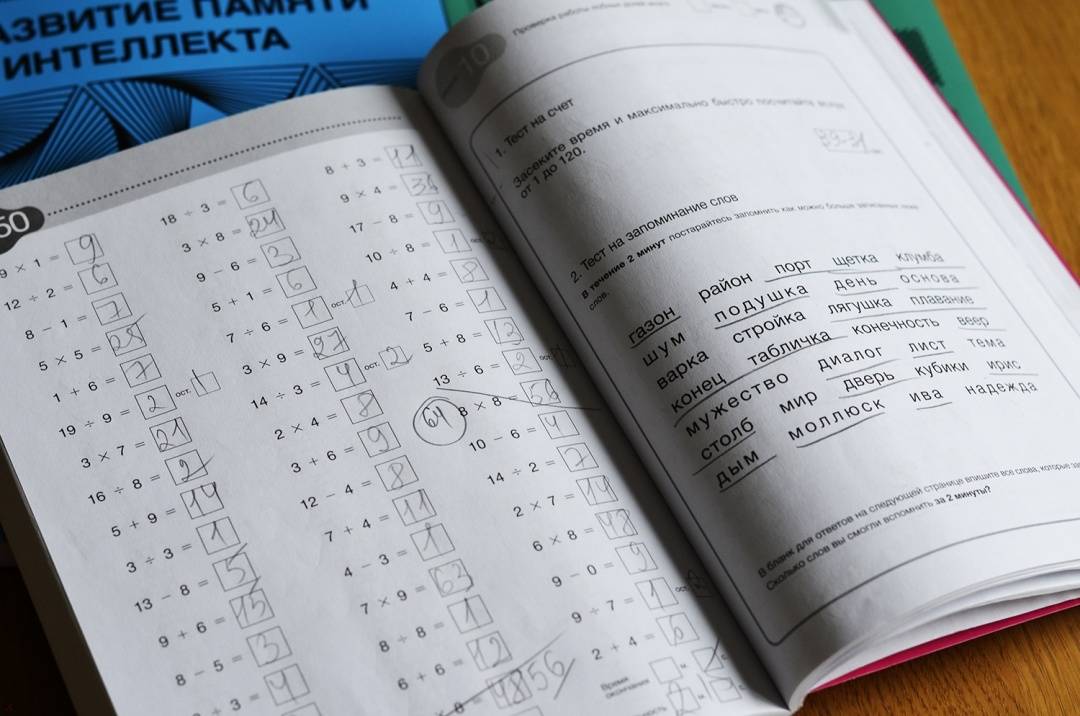 АЗВИТИЕ ПАМЯТИ
ИНТЕЛЛЕКТА
50
9 × 1 = 9
12 ÷ 2 = 6
8 − 1 = 7
5 × 5 = 25
1 + 6 = 7
19 ÷ 9 = 2 ост. 1
3 × 7 = 21
16 ÷ 8 = 2
5 + 9 = 14
3 ÷ 3 = 1
13 − 8 = 5
9 + 6 = 15
8 − 5 = 3
÷ 3 = 4
18 ÷ 3 = 6
3 × 8 = 24
9 − 6 = 3
5 + 1 = 6
7 ÷ 6 = 1 ост. 1
3 × 9 = 27
14 ÷ 3 = 4 ост. 2
2 × 4 = 8
3 + 6 = 9
12 − 4 = 8
7 + 4 = 11
4 − 3 = 1
7 × 9 = 63
8 ÷ 8 = 1
6 + 6 = 12
× 8 = 48 56
8 + 3 = 11
9 × 4 = 36
17 − 8 = 9
10 ÷ 8 = 1 ост. 2
4 + 4 = 8
7 − 6 = 1
5 + 8 = 13
13 ÷ 6 = 2 ост. 1
64 8 × 8 = 56
10 − 6 = 4
14 ÷ 2 = 7
2 × 7 = 14
6 × 8 = 48
9 − 0 = 9
9 ÷ 7 = 1 ост.
2 + 4 = 6
Время
окончания
10
Проверка работы лобных долей мозга
1. Тест на счет
Засеките время и максимально быстро посчитайте вслух
от 1 до 120.
2. Тест на запоминание слов
В течение 2 минут постарайтесь запомнить как можно больше записанных ниже
слов.
газон район порт щетка клумба
шум подушка день основа
варка стройка лягушка плавание
конец табличка конечность веер
мужество диалог лист тема
столб мир дверь кубики ирис
дым моллюск ива надежда
В бланк для ответов на следующей странице впишите все слова, которые
Сколько слов вы смогли вспомнить за 2 минуты?